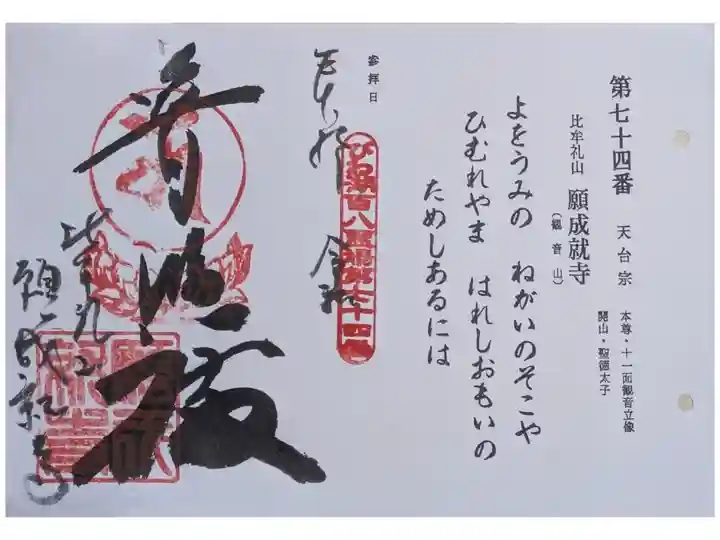 第七十四番 天台宗
本尊・十一面観音立像
開山・聖徳太子
比牟礼山 願成就寺
（観音山）
よをうみの ねがいのそこや
ひむれやま はれしおもいの
ためしあるには
参拝日
びわ湖百八霊場第七十四番
普照殿
比牟礼山
願成就寺